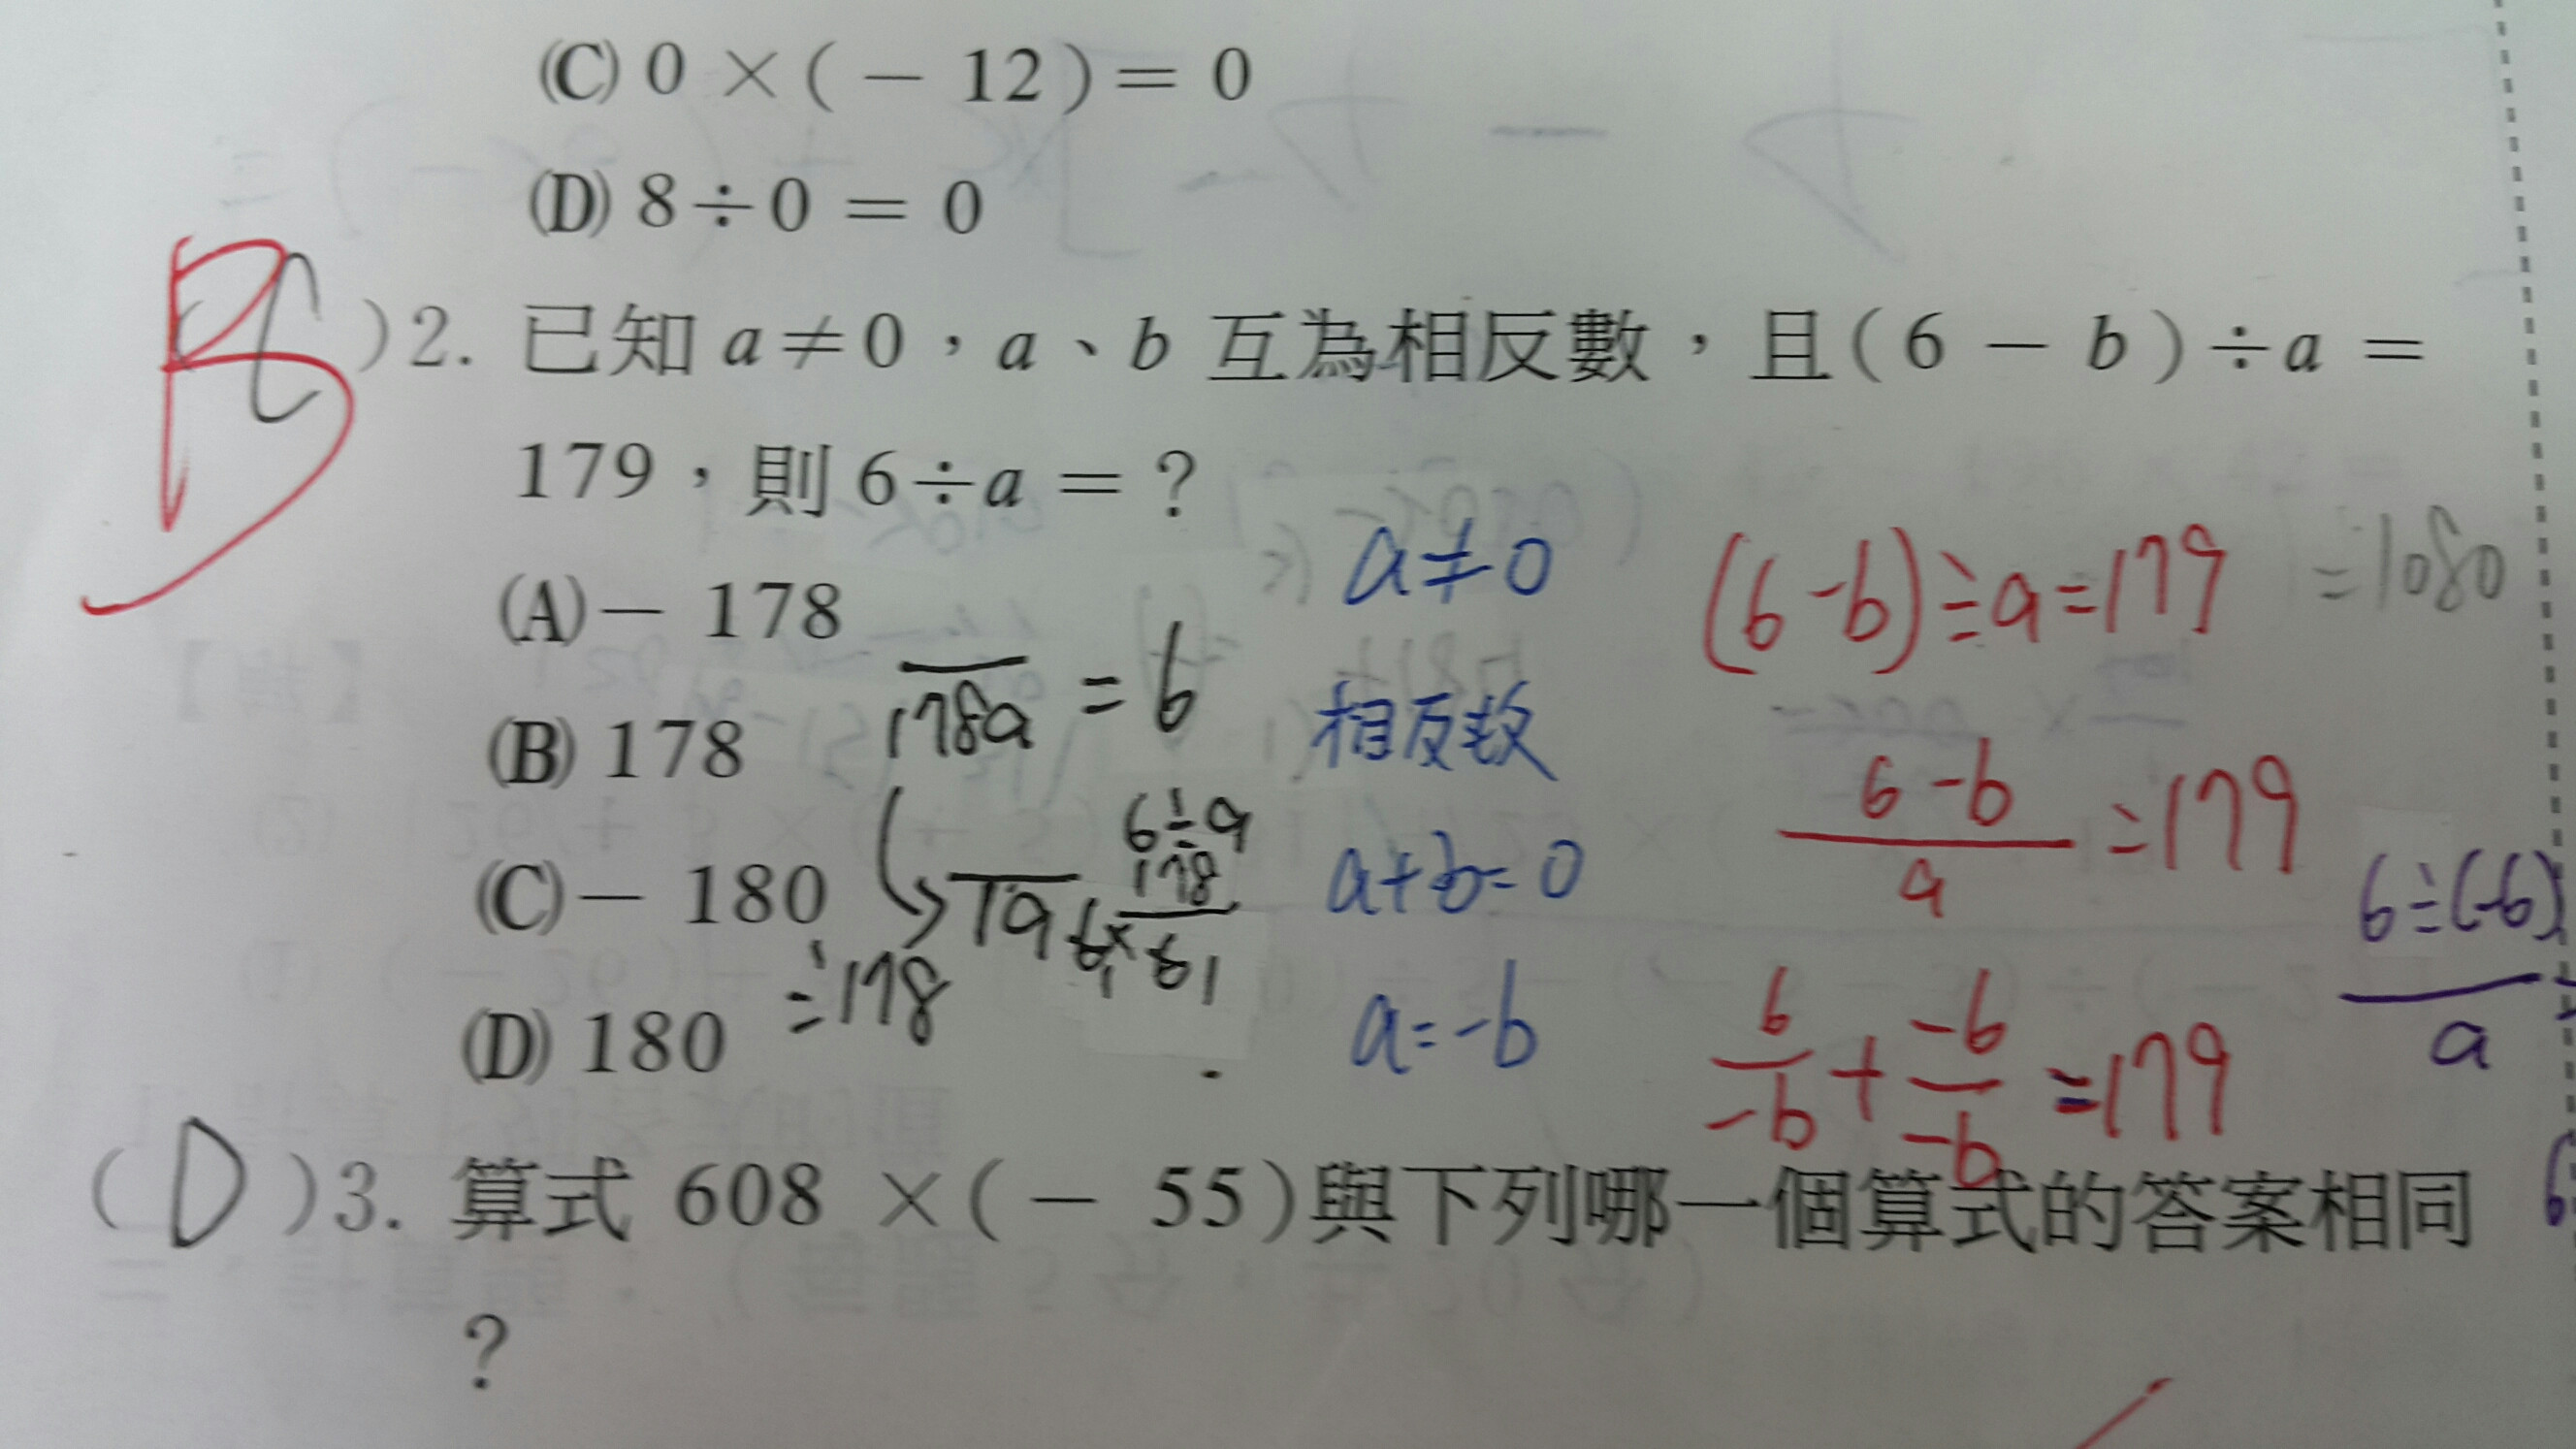 (C) 0 ×(− 12)= 0
(D) 8÷0 = 0
B
C
)2. 已知 a≠0，a、b 互為相反數，且(6 − b)÷a =
179，則 6÷a = ？
(A)− 178
(B) 178
(C)− 180
(D) 180
178a = 6
6÷a
178
=178
a≠0
相反数
a+b=0
a=-b
(6-b)÷a=179
=1080
6-b
a
=179
6
-b
+
-b
-b
=179
6÷(-6)
a
( D )3. 算式 608 ×(− 55)與下列哪一個算式的答案相同
？